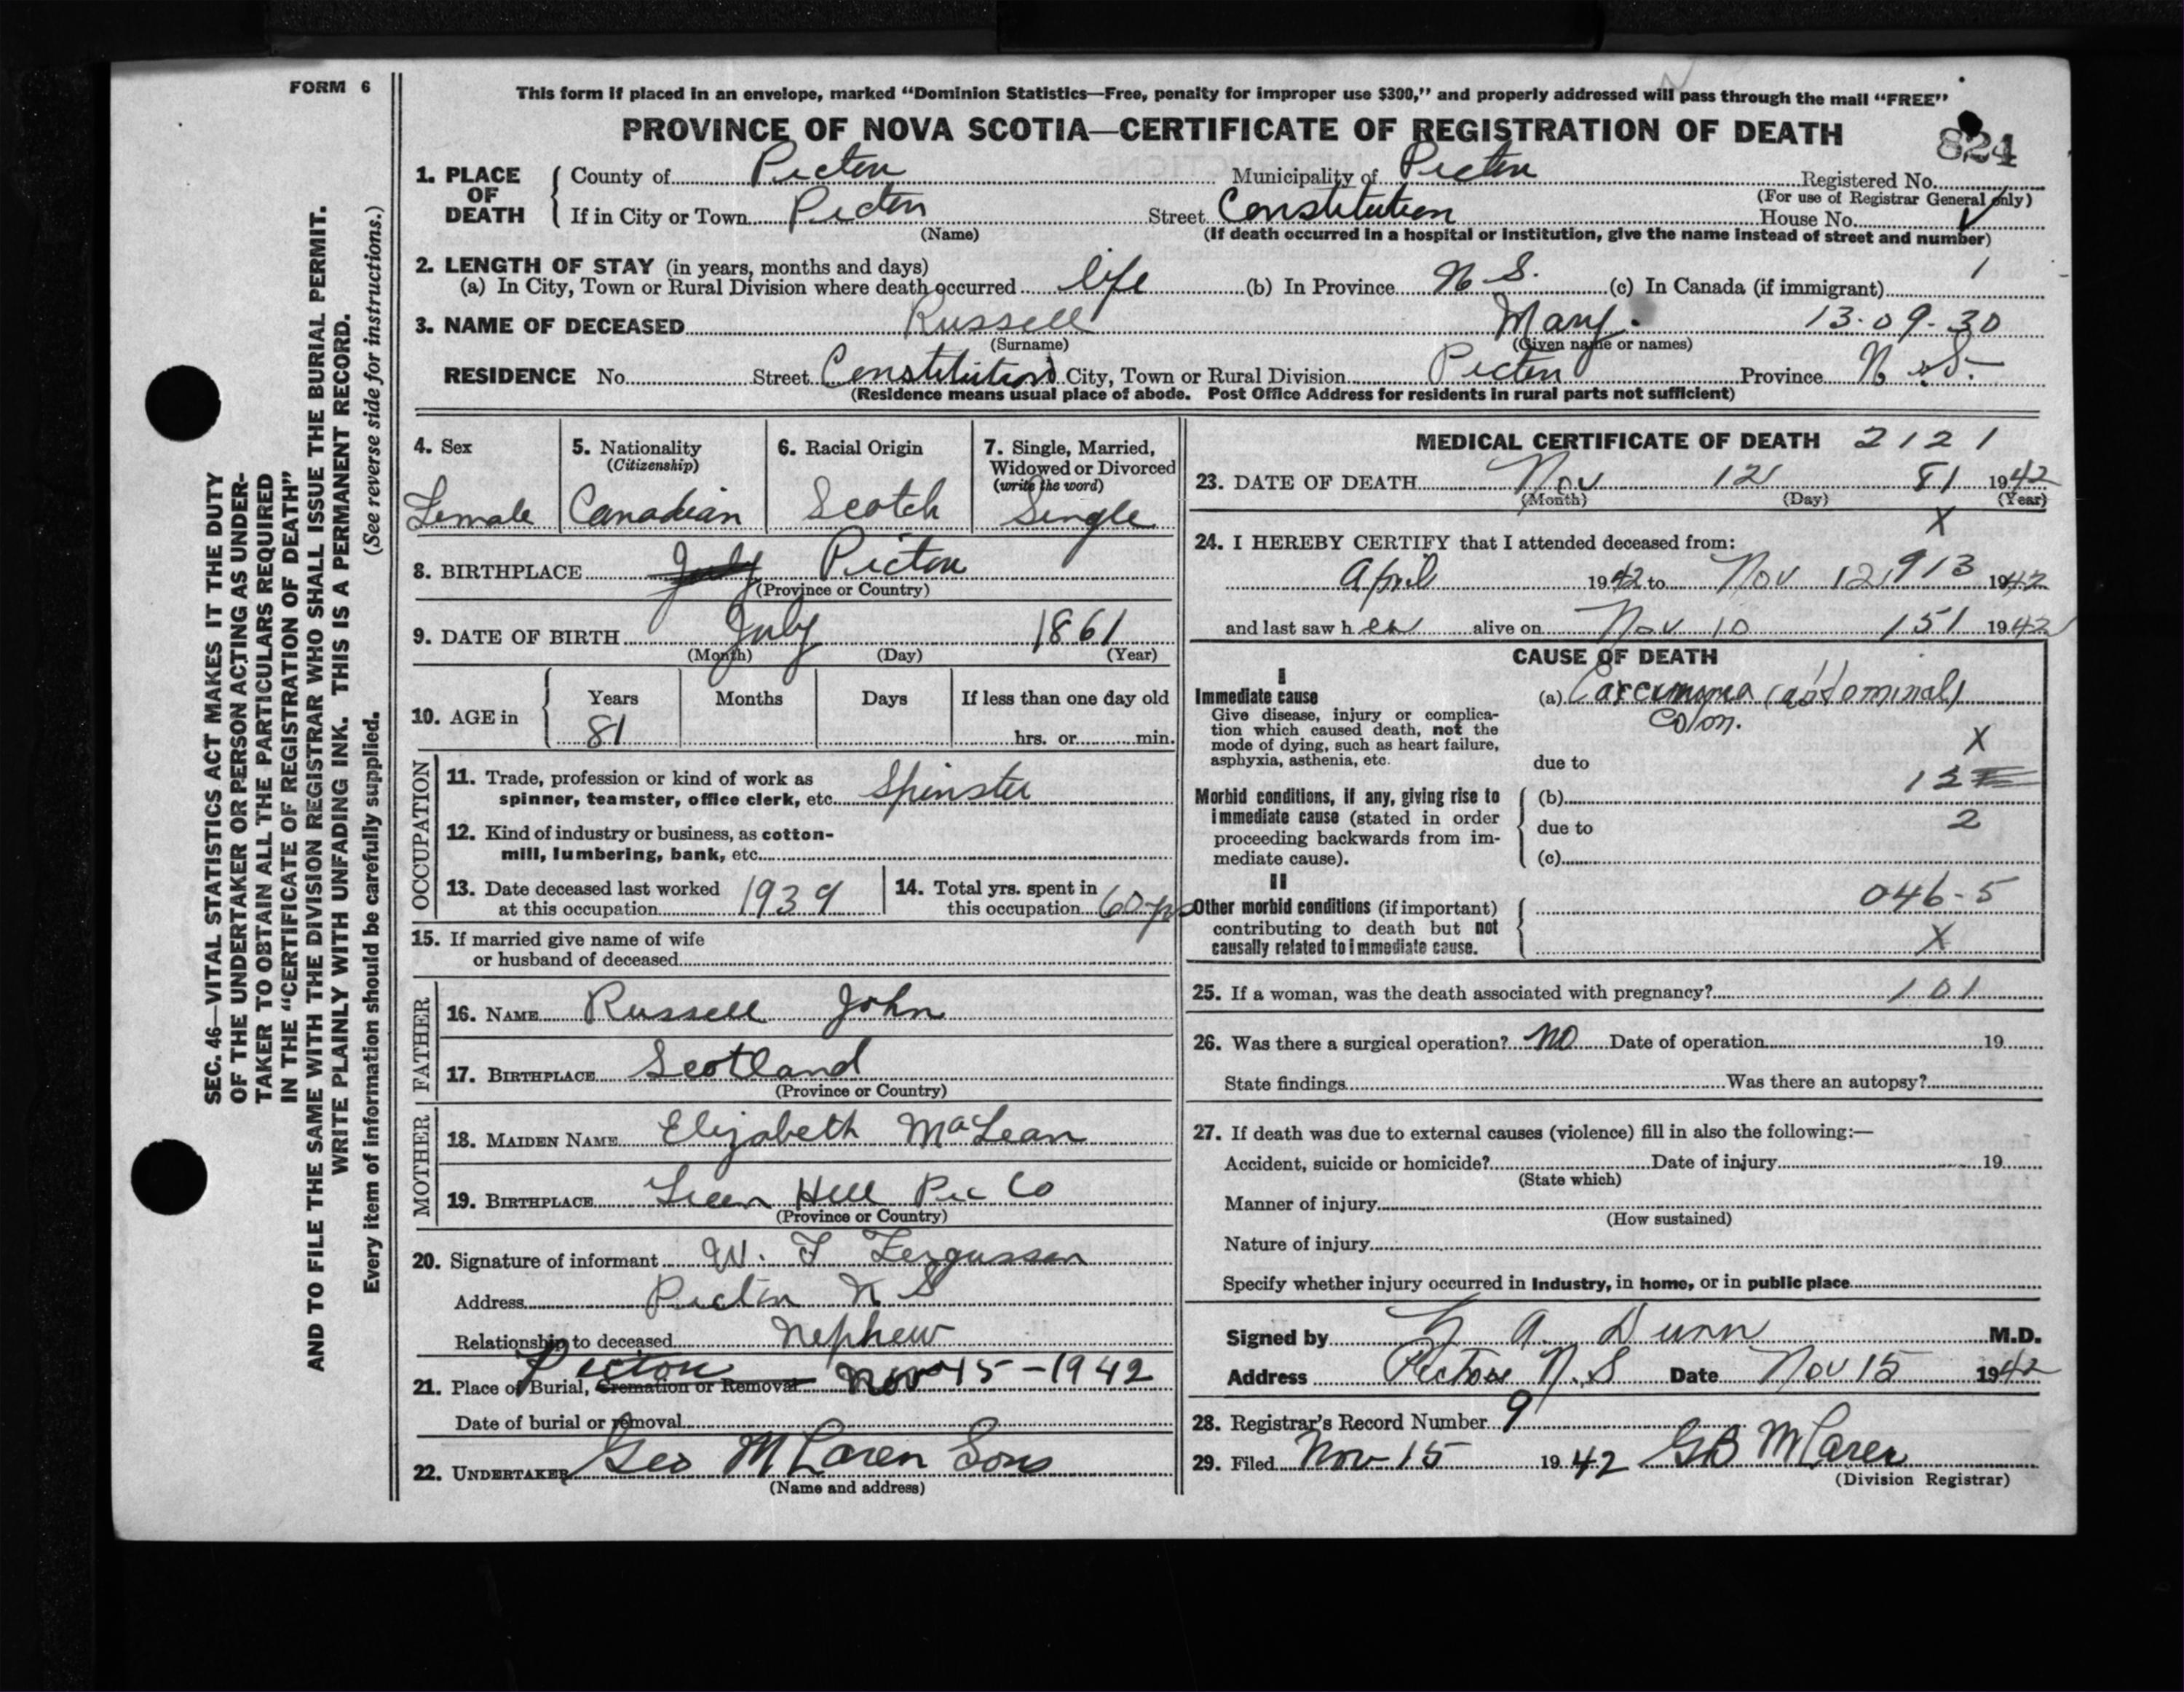 FORM 6
This form if placed in an envelope, marked "Dominion Statistics—Free, penalty for improper use $300," and properly addressed will pass through the mail "FREE"
PROVINCE OF NOVA SCOTIA—CERTIFICATE OF REGISTRATION OF DEATH
824
1. PLACE OF DEATH County of Pictou Municipality of Pictou Registered No.
(For use of Registrar General only)
If in City or Town Pictou Street Constitution House No.
(Name) (If death occurred in a hospital or institution, give the name instead of street and number)
2. LENGTH OF STAY (in years, months and days)
(a) In City, Town or Rural Division where death occurred life (b) In Province N S. (c) In Canada (if immigrant) 1
3. NAME OF DECEASED Russell Mary 13-09-30
(Surname) (Given name or names)
RESIDENCE No. Street Constitution City, Town or Rural Division Pictou Province N.S.
(Residence means usual place of abode. Post Office Address for residents in rural parts not sufficient)
4. Sex Female
5. Nationality (Citizenship) Canadian
6. Racial Origin Scotch
7. Single, Married, Widowed or Divorced (write the word) Single
8. BIRTHPLACE July Pictou
(Province or Country)
9. DATE OF BIRTH July 1861
(Month) (Day) (Year)
10. AGE in Years Months Days If less than one day old
81 hrs. or min.
OCCUPATION
11. Trade, profession or kind of work as
spinner, teamster, office clerk, etc. Spinster
12. Kind of industry or business, as cotton-
mill, lumbering, bank, etc.
13. Date deceased last worked
at this occupation 1939
14. Total yrs. spent in
this occupation 60 yrs
15. If married give name of wife
or husband of deceased
FATHER
16. NAME Russell John
17. BIRTHPLACE Scotland
(Province or Country)
MOTHER
18. MAIDEN NAME Elizabeth McLean
19. BIRTHPLACE Green Hill Pic Co
(Province or Country)
20. Signature of informant W. F Fergusson
Address Pictou N S
Relationship to deceased nephew
21. Place of Burial, Cremation or Removal Pictou Nov 15-1942
Date of burial or removal
22. UNDERTAKER Geo McLaren Sons
(Name and address)
MEDICAL CERTIFICATE OF DEATH 2121
23. DATE OF DEATH Nov 12 81 1942
(Month) (Day) (Year)
X
24. I HEREBY CERTIFY that I attended deceased from:
April 1942 to Nov 12 913 1942
and last saw her alive on Nov 10 151 1942
CAUSE OF DEATH
I
Immediate cause
Give disease, injury or complica-
tion which caused death, not the
mode of dying, such as heart failure,
asphyxia, asthenia, etc.
(a) Carcinoma (abdominal)
Colon.
X
due to
Morbid conditions, if any, giving rise to
immediate cause (stated in order
proceeding backwards from im-
mediate cause).
(b)
due to 2
(c)
II
Other morbid conditions (if important)
contributing to death but not
causally related to immediate cause.
046-5
X
25. If a woman, was the death associated with pregnancy? 101
26. Was there a surgical operation? NO Date of operation 19
State findings Was there an autopsy?
27. If death was due to external causes (violence) fill in also the following:—
Accident, suicide or homicide? Date of injury 19
(State which)
Manner of injury
(How sustained)
Nature of injury
Specify whether injury occurred in Industry, in home, or in public place
Signed by G A. Dunn M.D.
Address Pictou N.S Date Nov 15 1942
28. Registrar's Record Number 9
29. Filed Nov 15 1942 GB McLaren
(Division Registrar)
SEC. 46—VITAL STATISTICS ACT MAKES IT THE DUTY
OF THE UNDERTAKER OR PERSON ACTING AS UNDER-
TAKER TO OBTAIN ALL THE PARTICULARS REQUIRED
IN THE "CERTIFICATE OF REGISTRATION OF DEATH"
AND TO FILE THE SAME WITH THE DIVISION REGISTRAR WHO SHALL ISSUE THE BURIAL PERMIT.
WRITE PLAINLY WITH UNFADING INK. THIS IS A PERMANENT RECORD.
Every item of information should be carefully supplied. (See reverse side for instructions.)